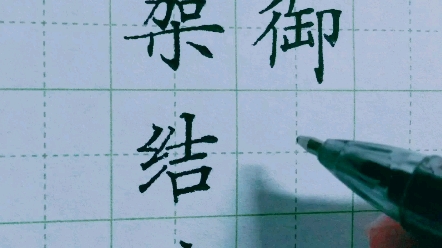 御
架结